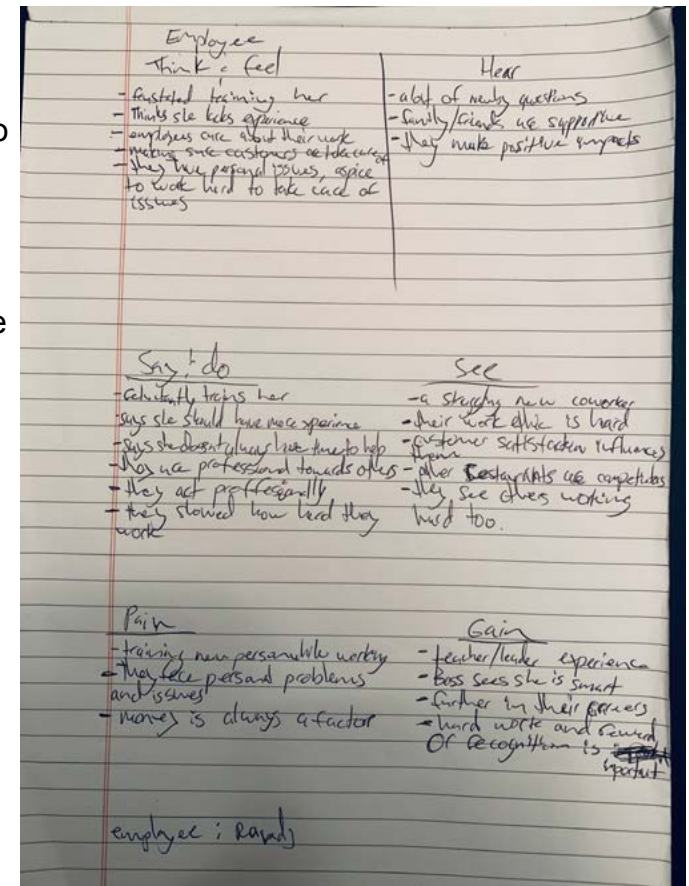 Employee
Think & feel
- frustated training her
- Thinks she lacks experience
- employees care about their work
- making sure customers are taken care of
- they have personal issues, aspire
to work hard to take care of
issues
Hear
- a lot of newby questions
- family/friends are supportive
- they make positive impacts
Say & do
- reluctantly trains her
- says she should have more experience
- says she doesn't always have time to help
- they are professional towards others
- they act proffesionally
- they showed how hard they
work
See
- a struggling new coworker
- their work ethic is hard
- customer satisfaction influences
them
- other restaurants are competitors
- they see others working
hard too.
Pain
- training new person while working
- they face personal problems
and issues
- money is always a factor
Gain
- teacher/leader experience
- Boss sees she is smart
- further in their careers
- hard work and reward
of recognition is
important
employee :